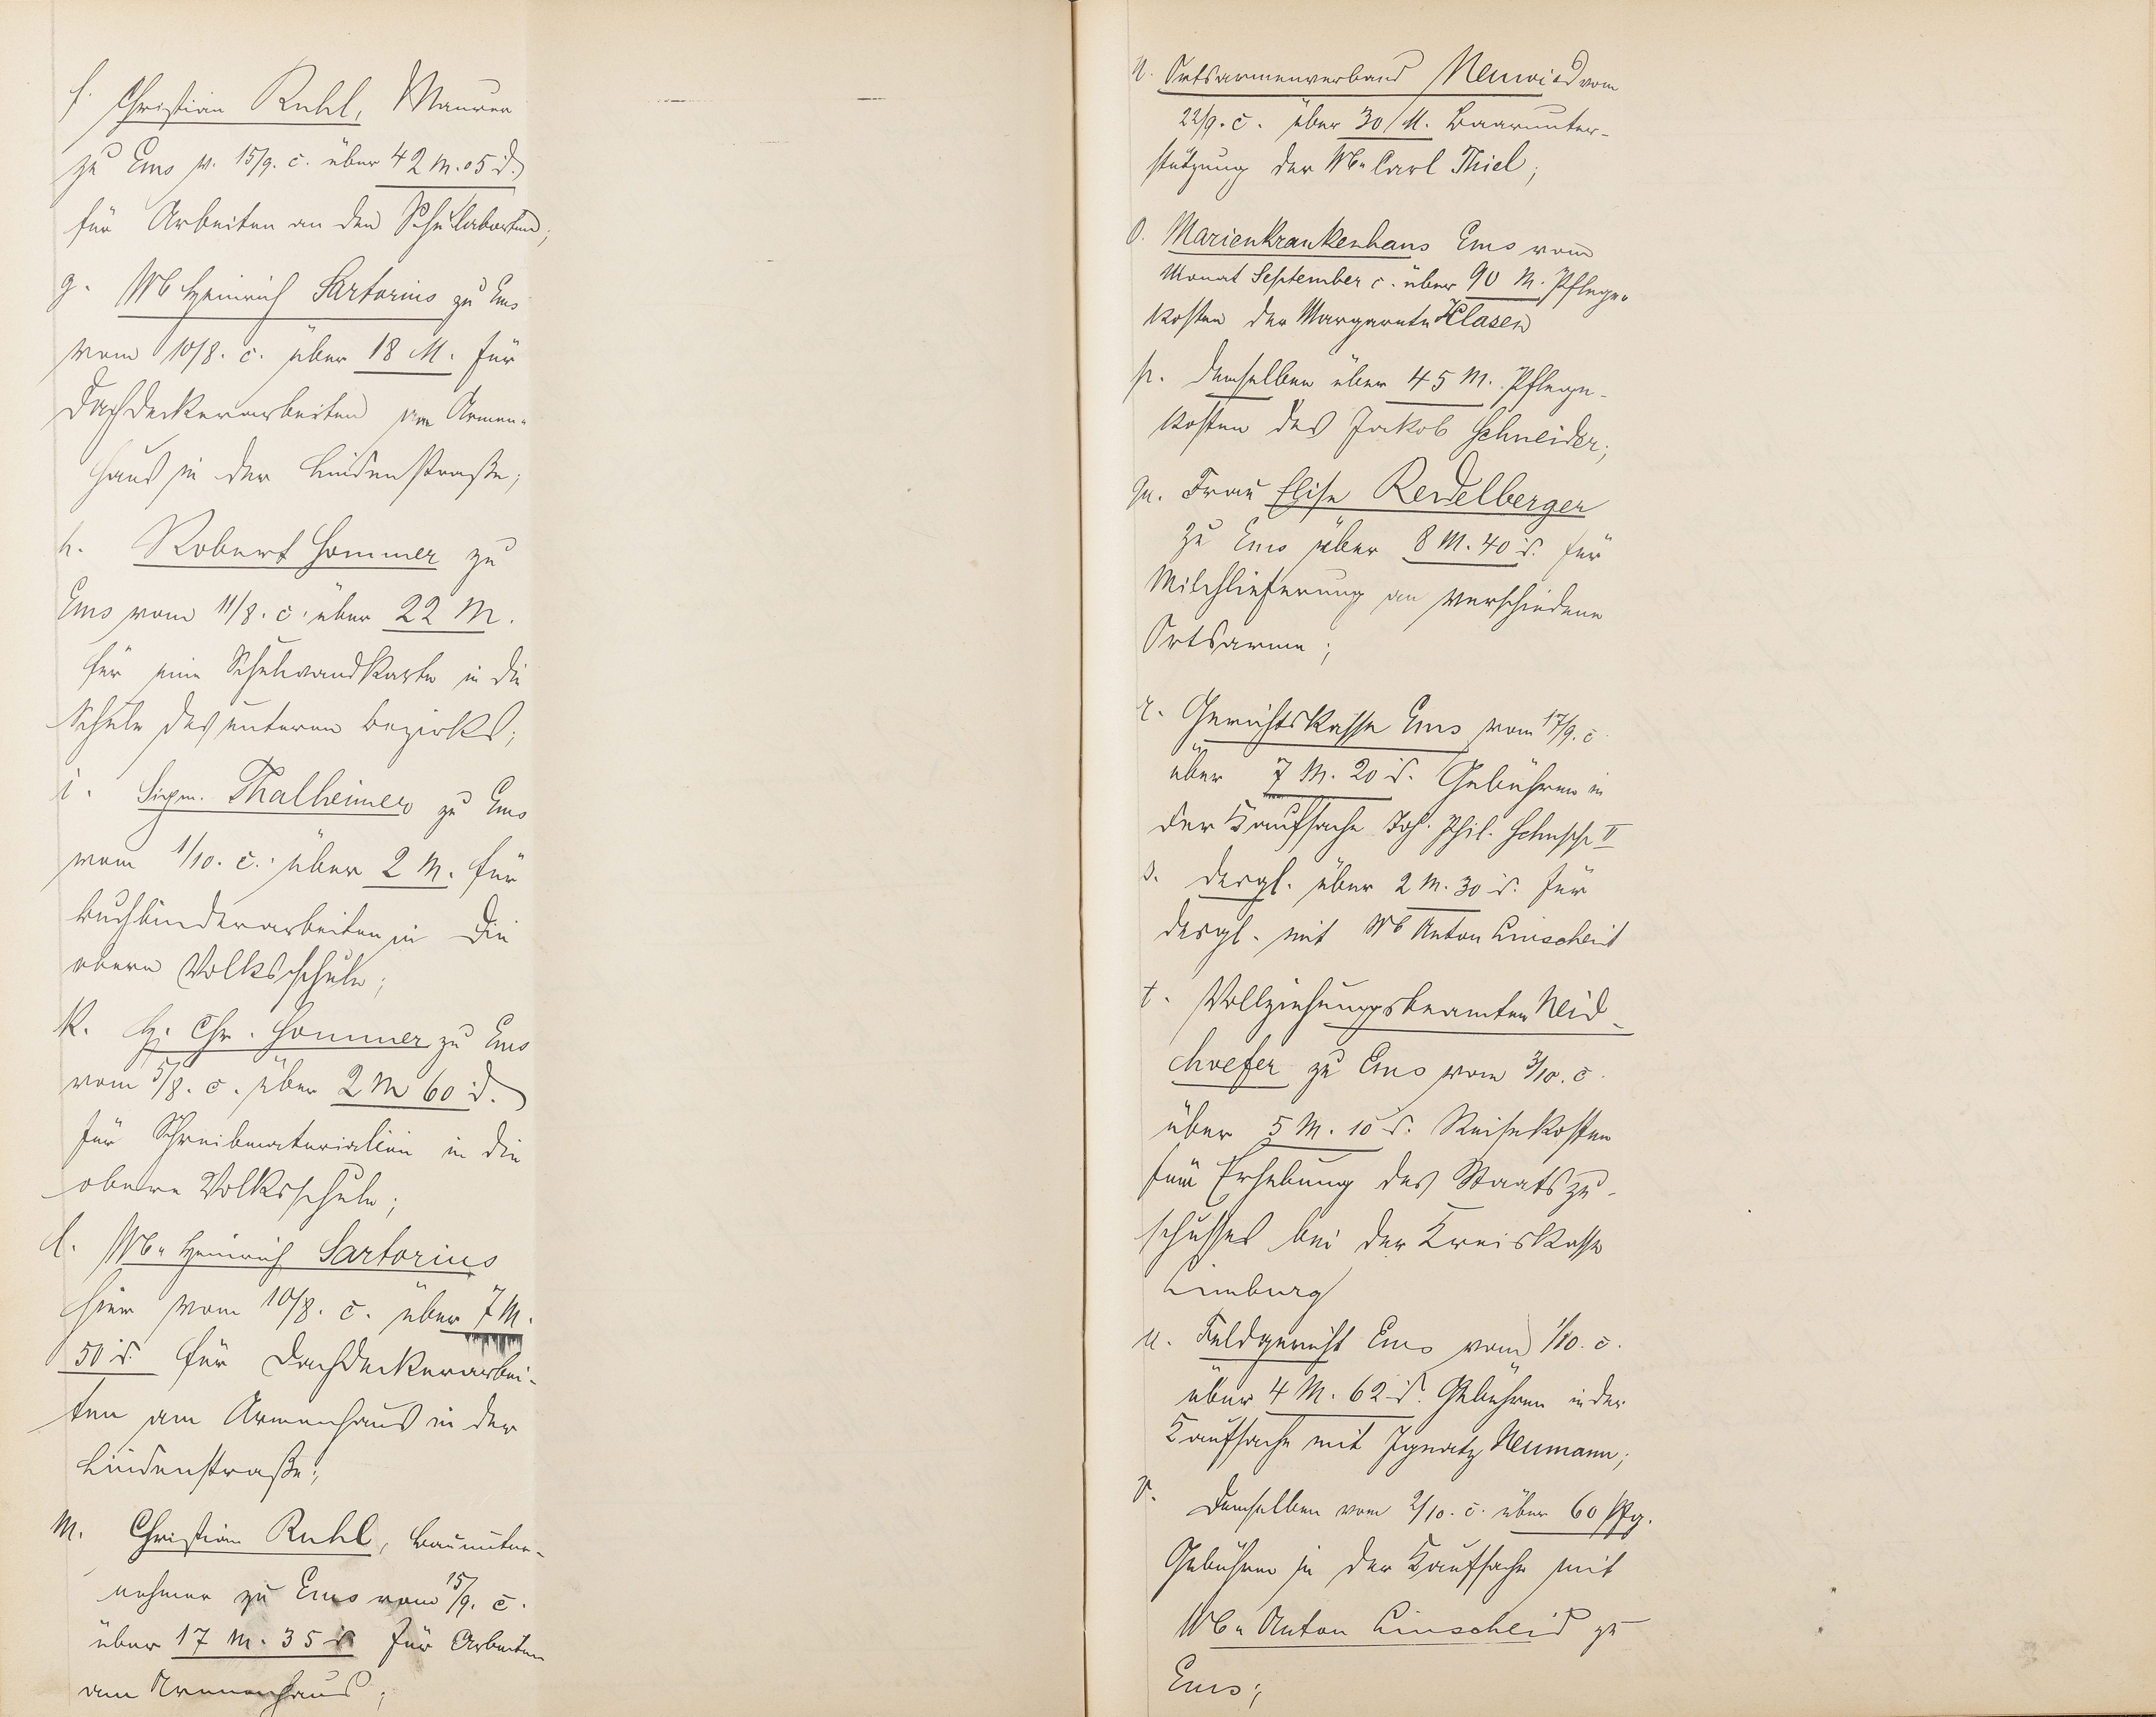 f. Christian Ruhl, Maurer
zu Ems v. 15/9. c. über 42 M. 05 d.
für Arbeiten an den Schulaborten;
g. Wb Heinrich Sartorius zu Ems
vom 10/8. c. über 18 M. für
Dachdeckerarbeiten am Armen-
haus in der Lindenstraße;
h. Robert Sommer zu
Ems vom 11/8. c. über 22 M.
für eine Schulwandkarte in die
Schule des unteren Bezirks;
i. Sigm. Thalheimer zu Ems
vom 1/10. c. über 2 M. für
Buchbinderarbeiten in die
obere Volksschule;
k. H. Chr. Sommer zu Ems
vom 5/8. c. über 2 M 60 d.
für Schreibmaterialien in die
obere Volksschule;
l. Wb. Heinrich Sartorius
hier vom 10/8. c. über 7 M.
50 d. für Dachdeckerarbei-
ten am Armenhaus in der
Lindenstraße;
m. Christian Ruhl, Bauunter-
nehmer zu Ems vom 15/9. c.
über 17 M. 35 d. für Arbeiten
am Armenhaus;
n. Ortsarmenverband Neuwied vom
22/9. c. über 30 M. Baarunter-
stützung der Wb. Carl Thiel;
o. Marienkrankenhaus Ems vom
Monat September c. über 90 M. Pflege-
kosten der Margarete Klasen
p. demselben über 45 M. Pflege-
kosten des Jakob Schneider;
qu. Frau Elise Redelberger
zu Ems über 8 M. 40 d. für
Milchlieferung an verschiedene
Ortsarme;
r. Gerichtskasse Ems vom 17/9. c.
über 7 M. 20 d. Gebühren in
der Kaufsache Joh. Phil. II
s. desgl. über 2 M. 30 d. für
desgl. mit Wb Anton Linscheid
t. Vollziehungsbeamten Neid-
hoefer zu Ems vom 3/10. c.
über 5 M. 10 d. Reisekosten
für Erhebung des Staatszu-
schusses bei der Kreiskasse
Limburg
u. Feldgericht Ems vom 1/10. c.
über 4 M. 62 d. Gebühren in der
Kaufsache mit Ignatz Neumann;
v. Demselben vom 2/10. c. über 60 Pfg.
Gebühren in der Kaufsache mit
Wb. Anton Linscheid zu
Ems;